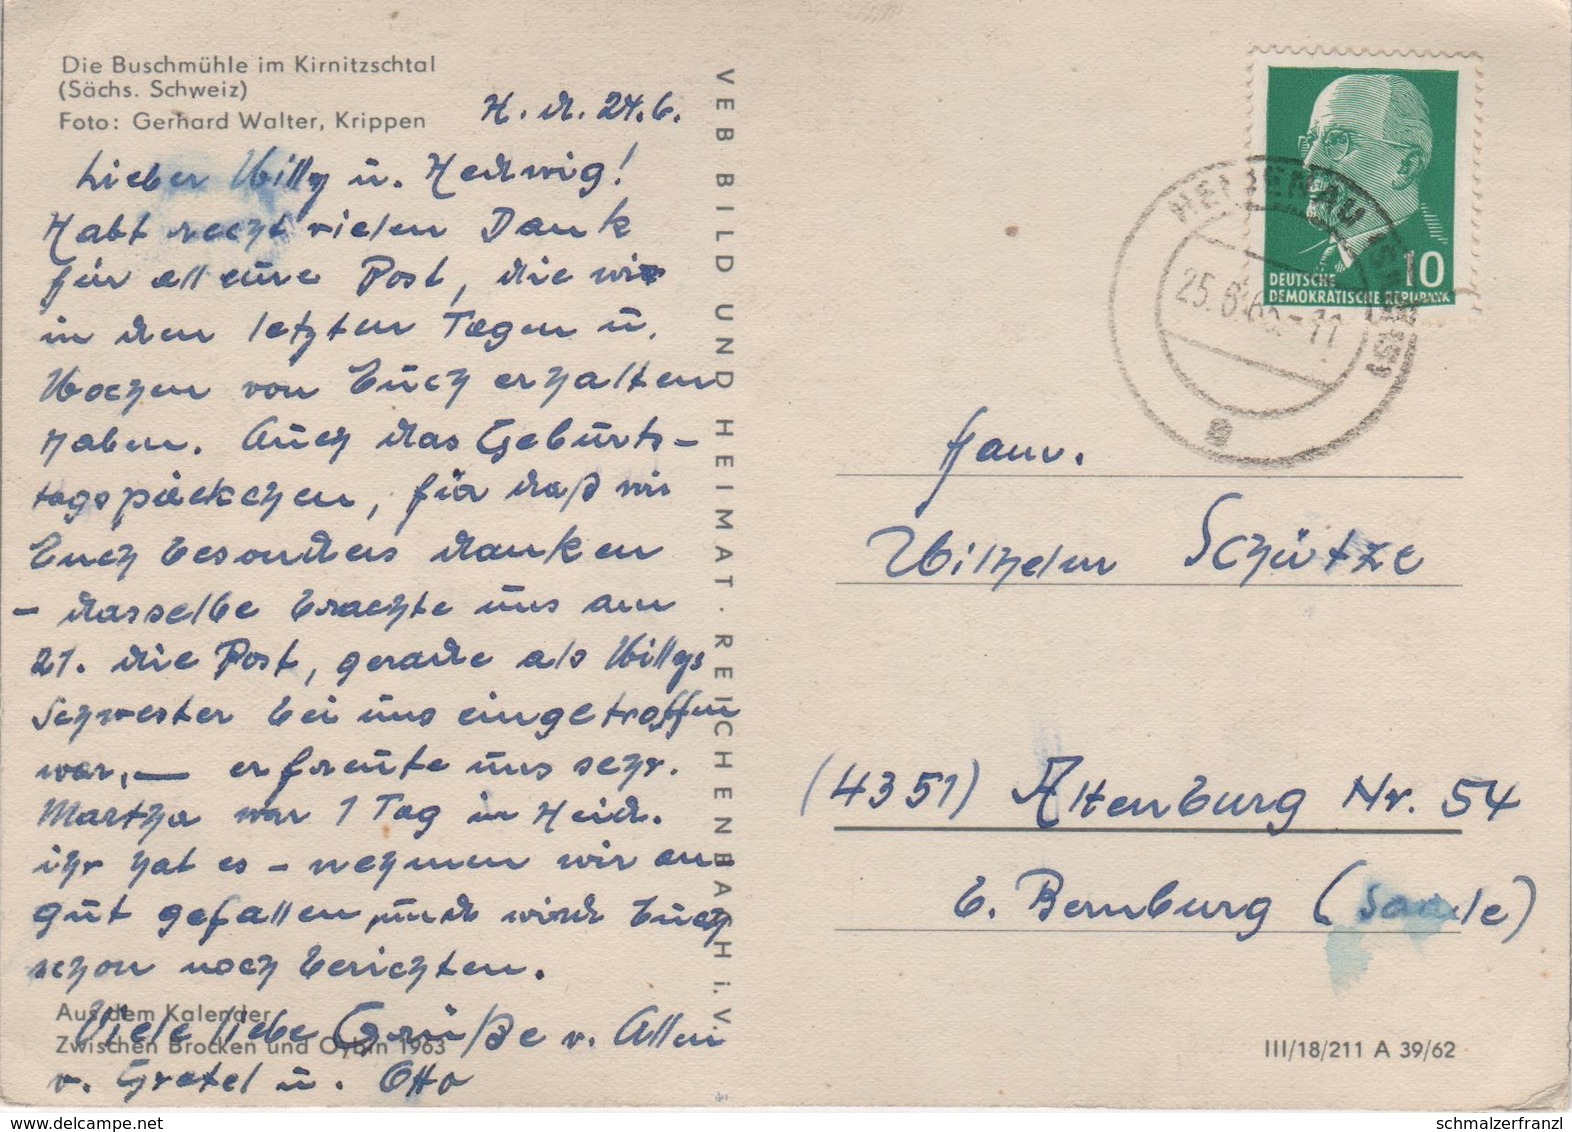 Die Buschmühle im Kirnitzschtal
(Sächs. Schweiz)
Foto: Gerhard Walter, Krippen
H. d. 24.6.
Lieber Willy u. Hedwig!
Habt recht vielen Dank
für all eure Post, die wir
in den letzten Tagen u.
Wochen von Euch erhalten
haben. Auch das Geburts-
tagspäckchen, für daß wir
Euch besonders danken
– dasselbe brachte uns am
21. die Post, gerade als Willys
Schwester bei uns eingetroffen
war, — erfreute uns sehr.
Martha war 1 Tag in Heid.
ihr hat es – nehmen wir an
gut gefallen und wird Euch
schon noch berichten.
Viele liebe Grüße v. Allen
v. Gretel u. Otto
Aus dem Kalender
Zwischen Brocken und Oybin 1963
VEB BILD UND HEIMAT · REICHENBACH i. V.
10
DEUTSCHE
DEMOKRATISCHE REPUBLIK
HEIDENAU
25.6. -11
a
Fam.
Wilhelm Schütze
(4351) Altenburg Nr. 54
b. Bernburg (Saale)
III/18/211 A 39/62
www.delcampe.net
schmalzerfranzl